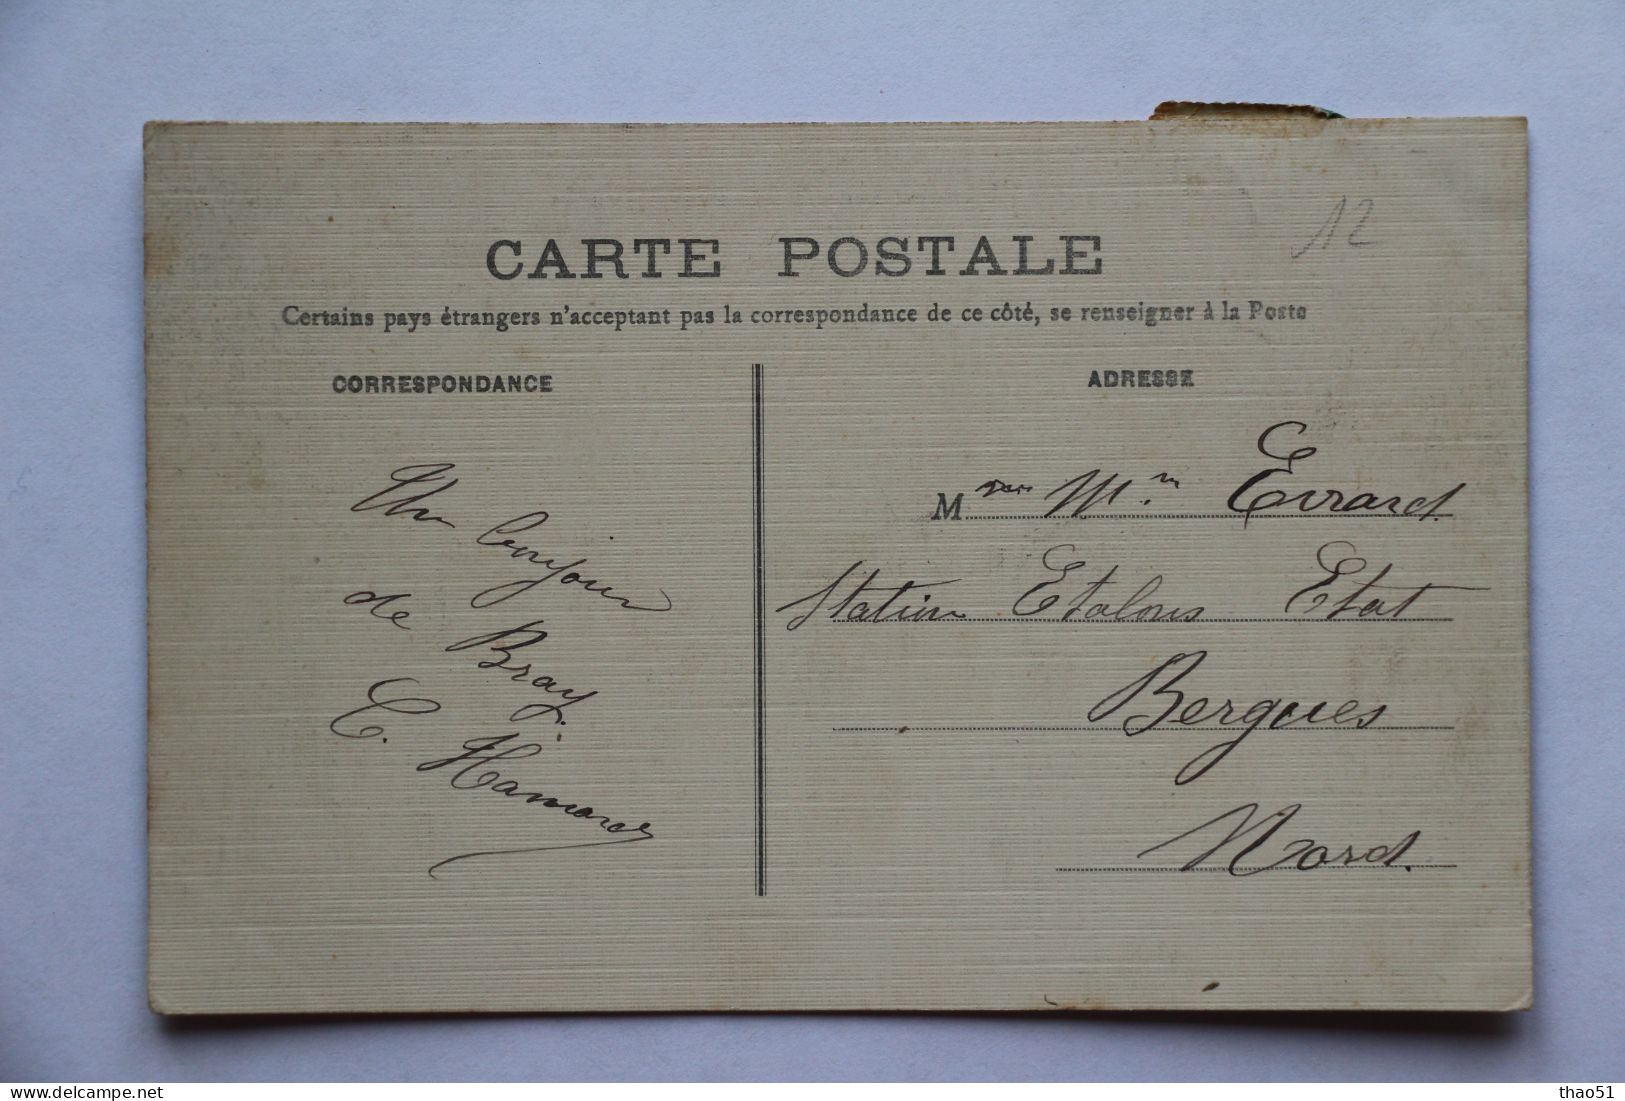 12
CARTE POSTALE
Certains pays étrangers n'acceptant pas la correspondance de ce côté, se renseigner à la Poste
CORRESPONDANCE
Un bonjour
de Bray.
C. Hamard
ADRESSE
M Evrard
Station Etalons Etat
Bergues
Nord.
www.delcampe.net
thao51